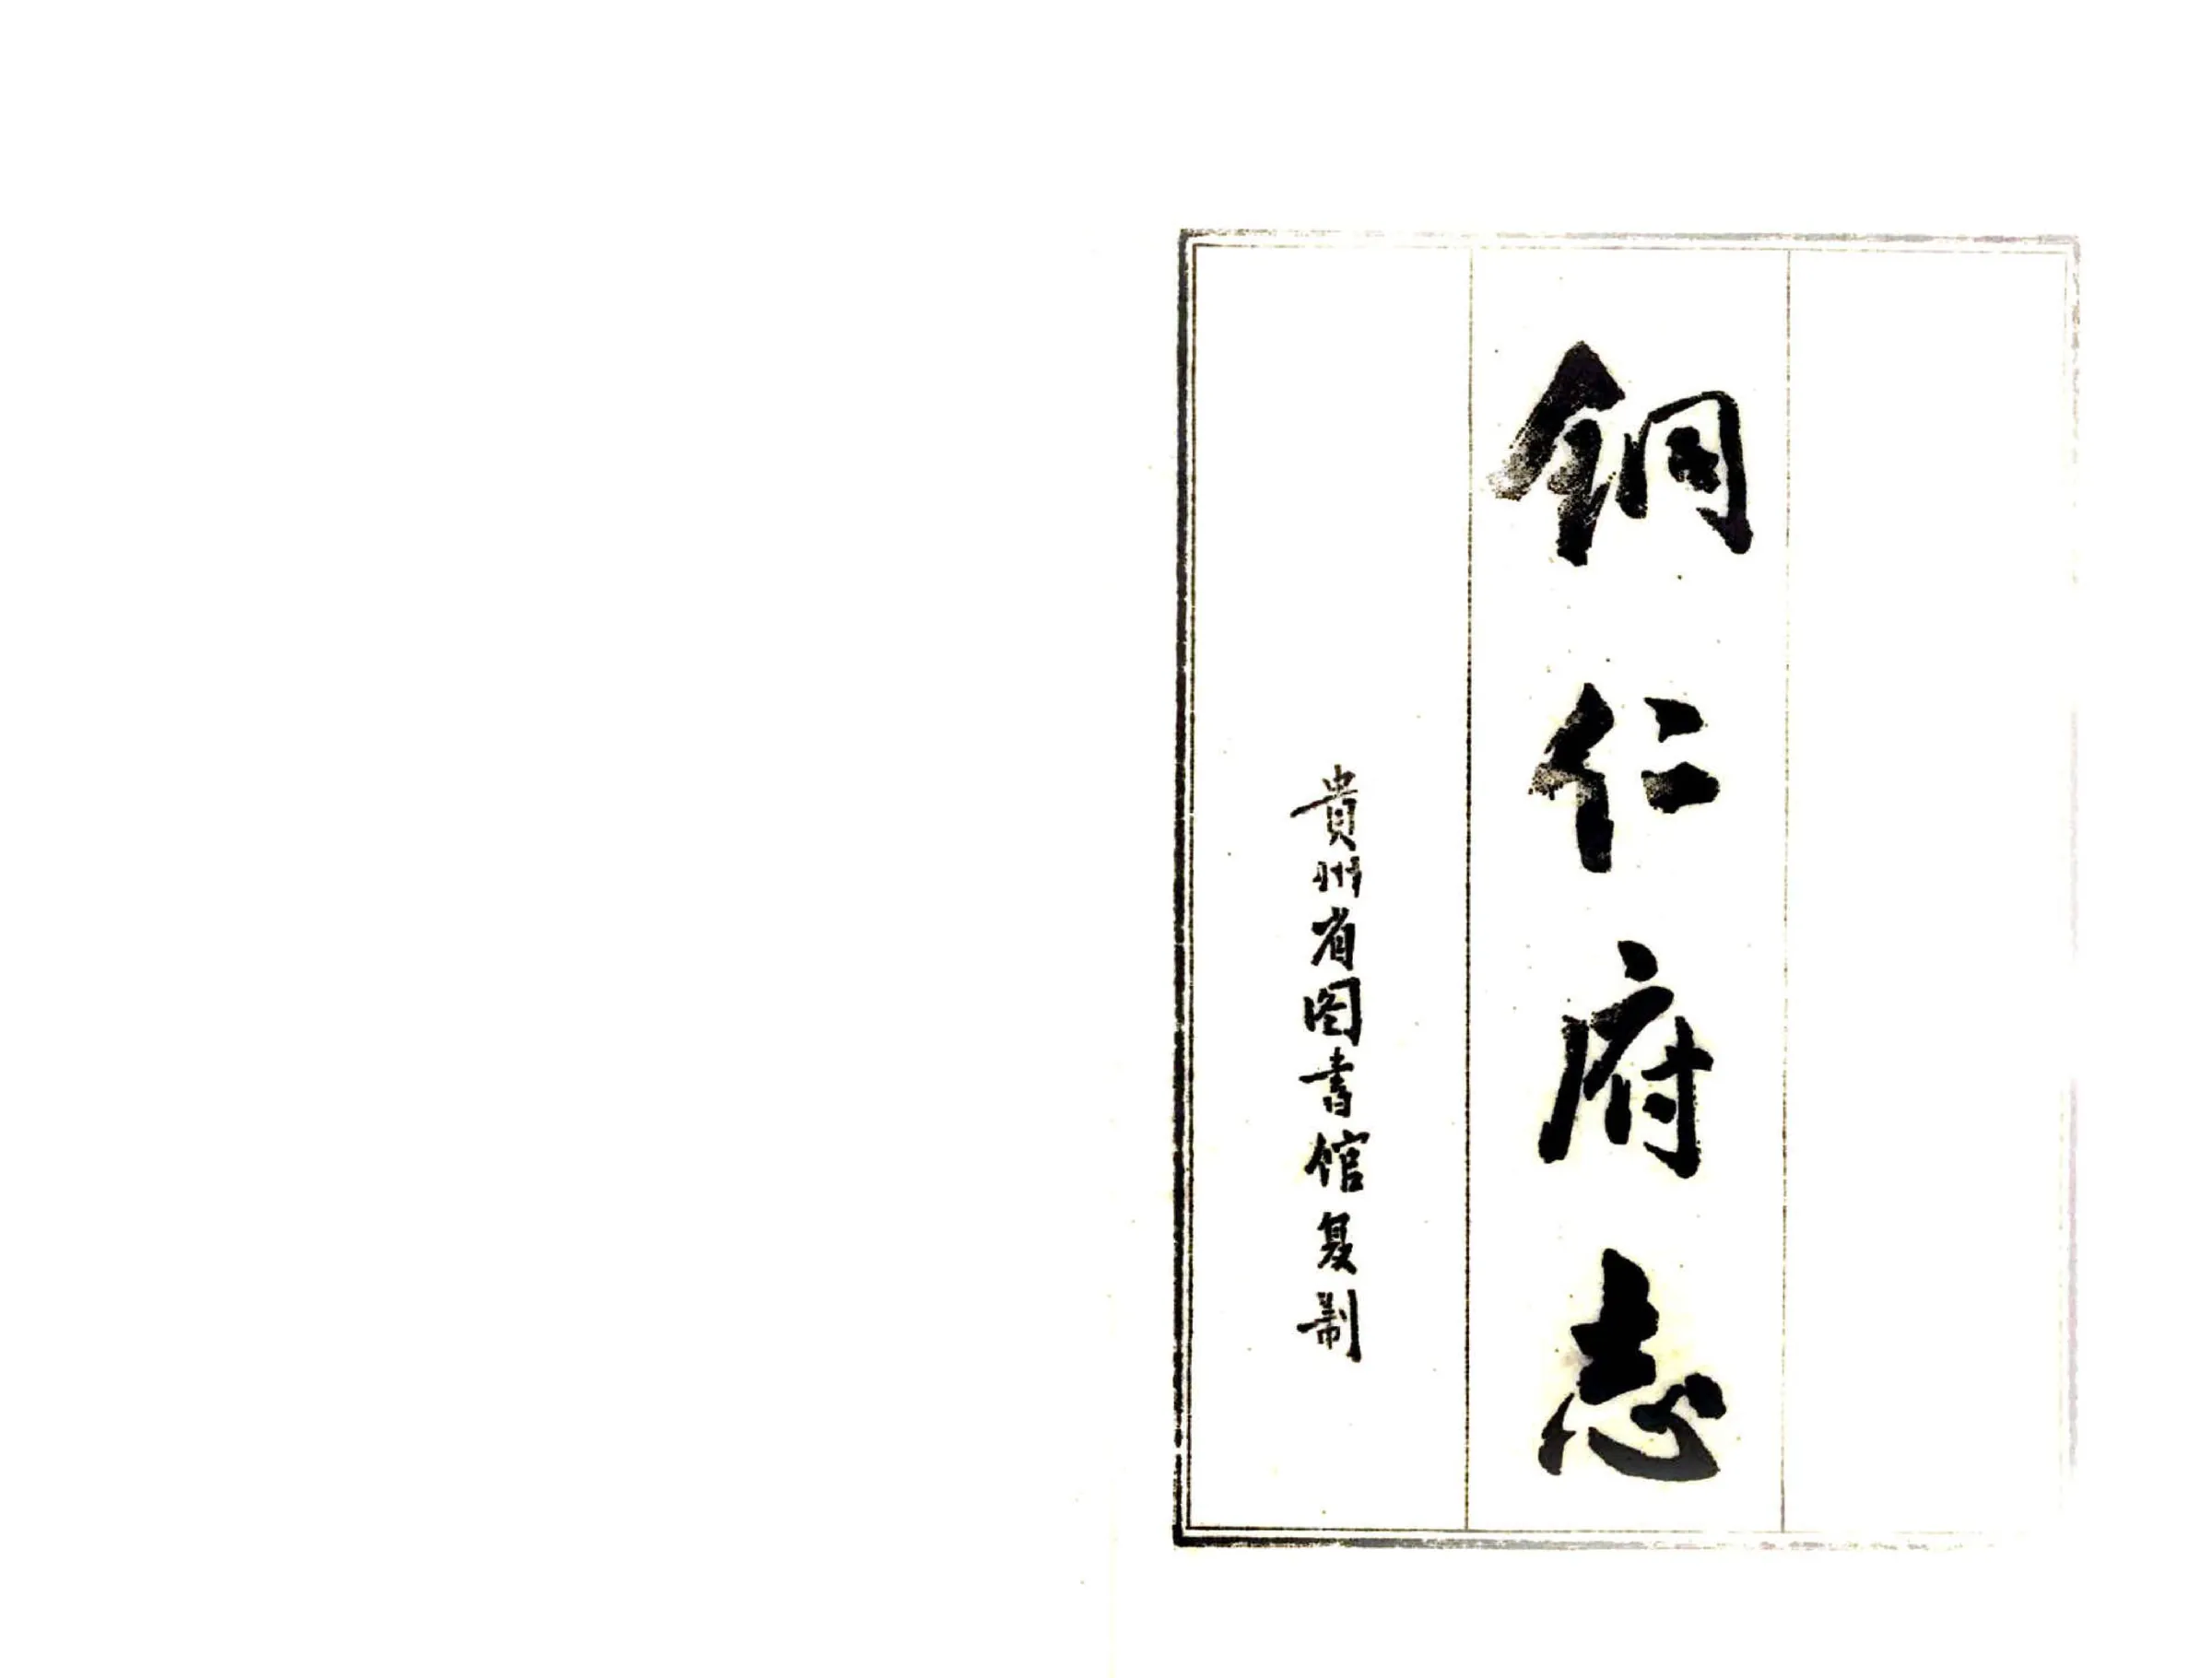 铜仁府志
貴州省图書馆复制